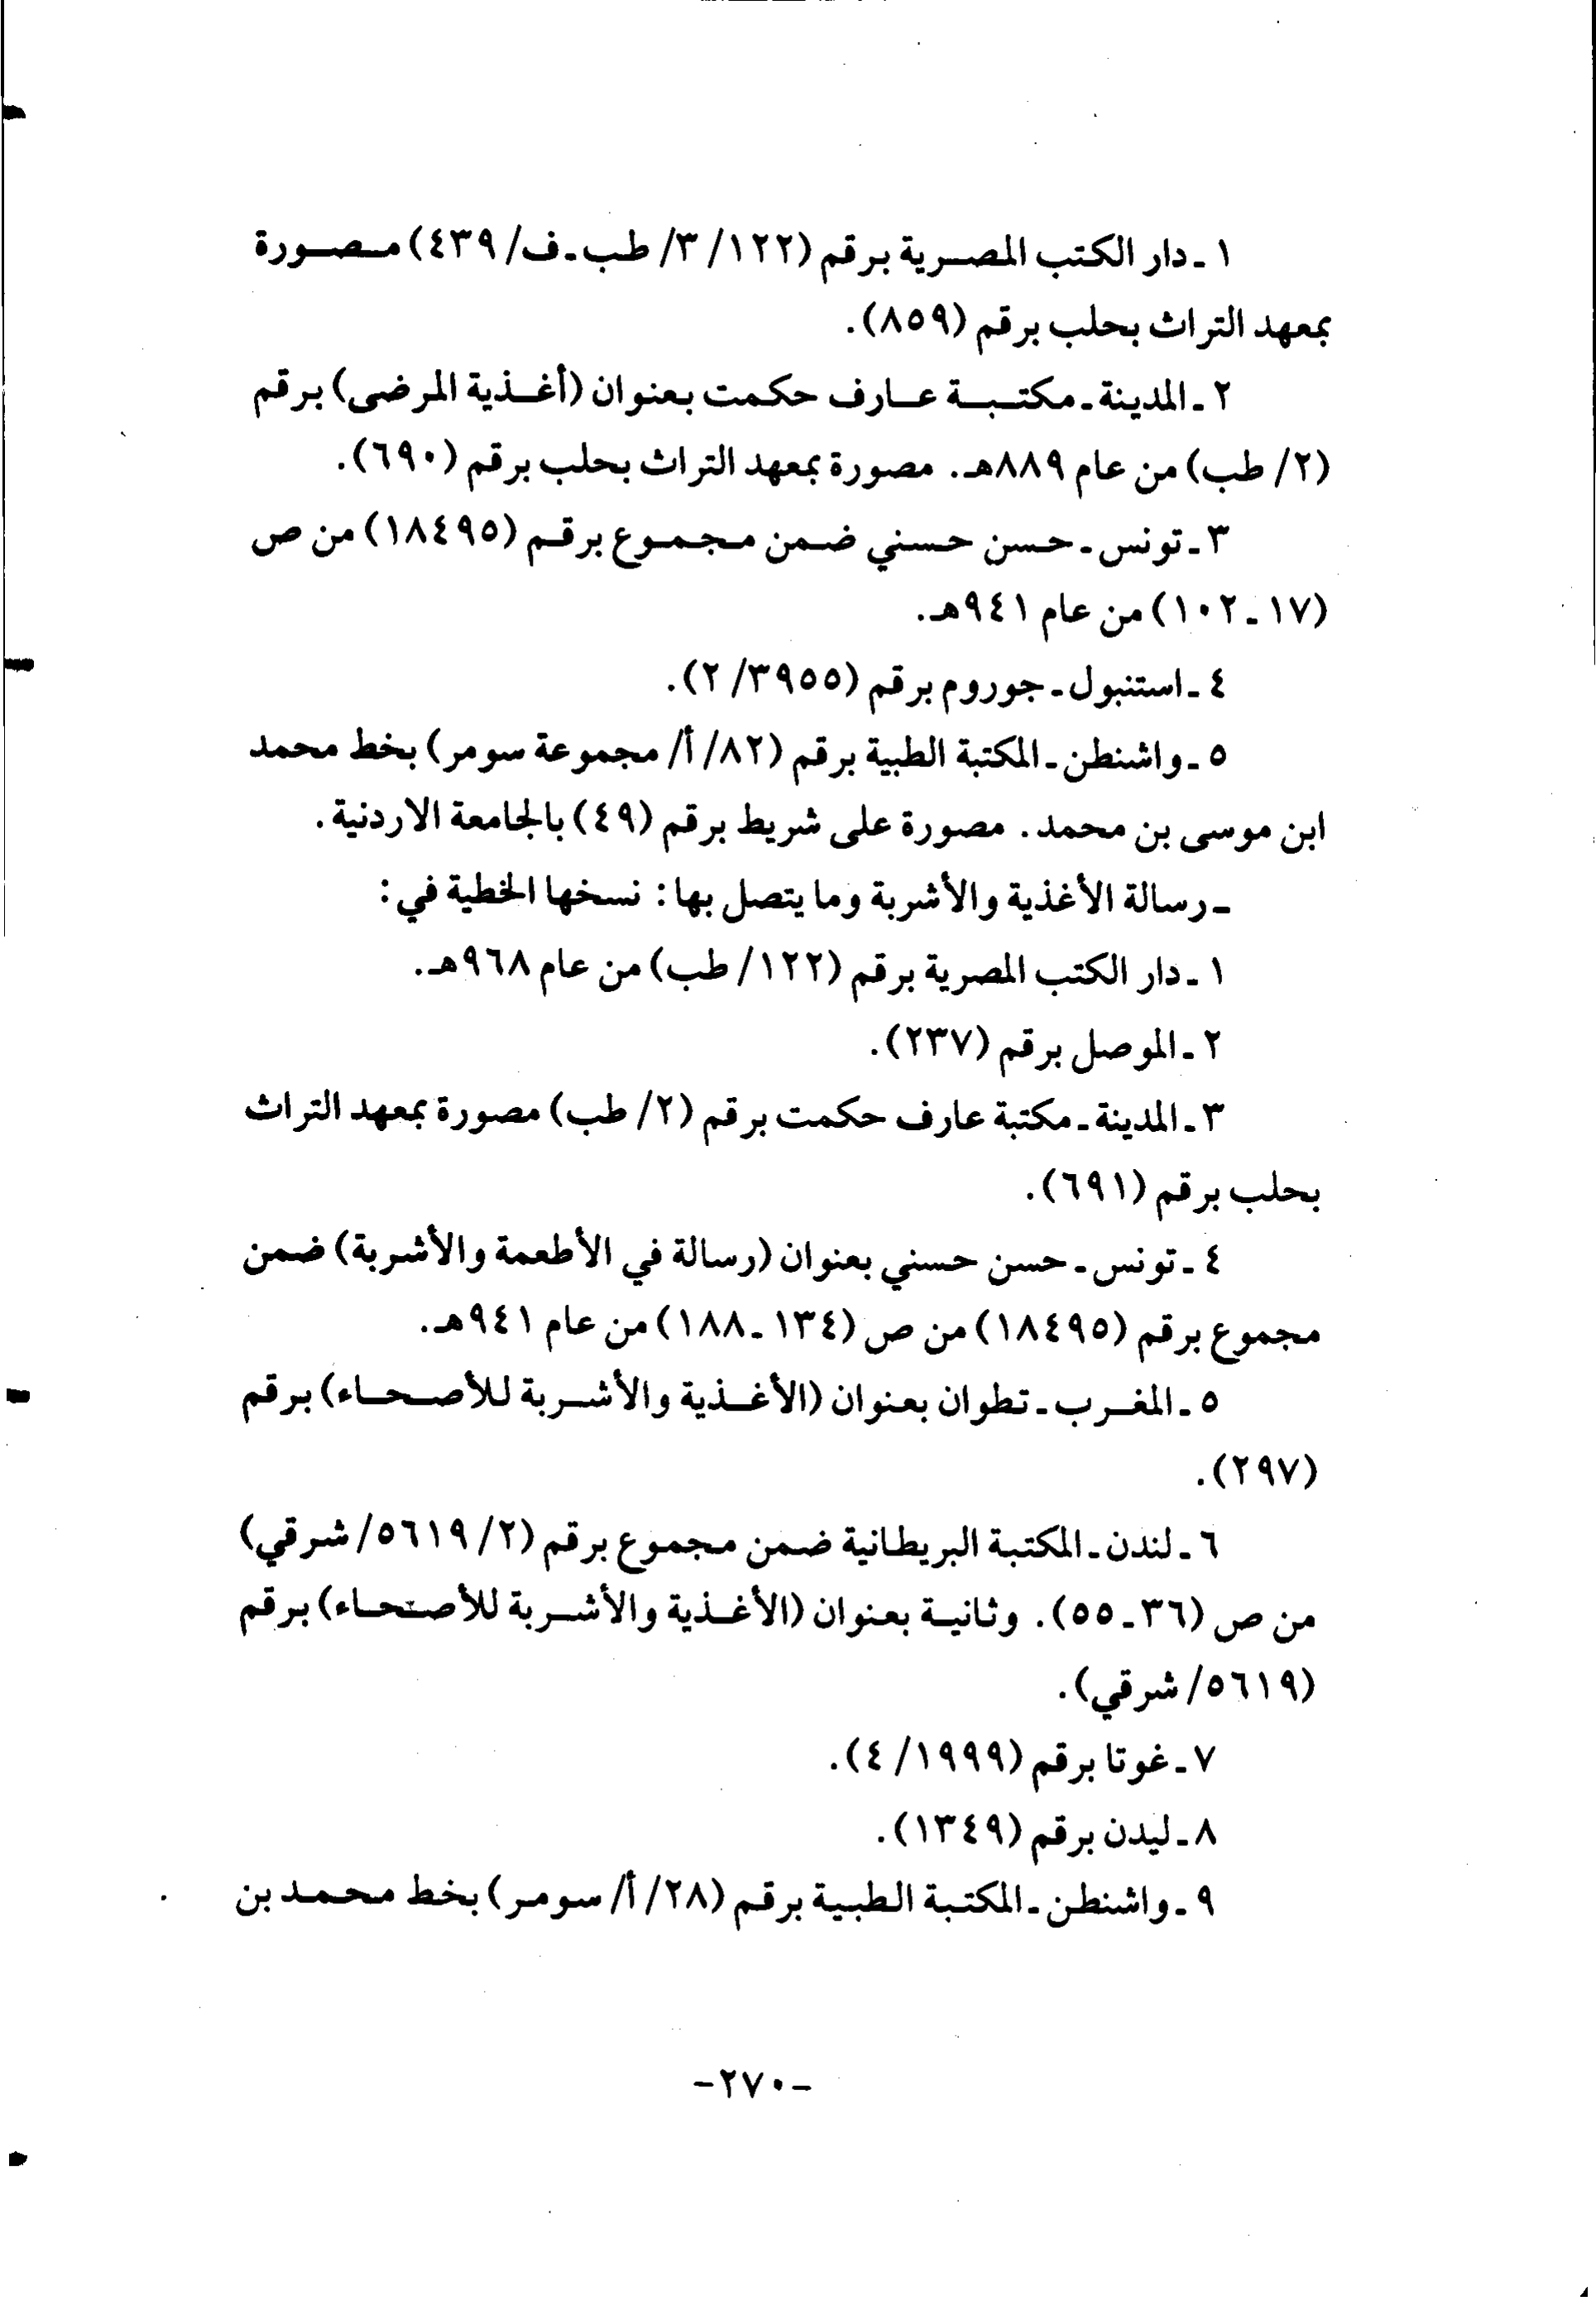 ١ ـ دار الكتب المصرية برقم (١٢٢/ ٣/ طب ـ ف/ ٤٣٩) مصورة
بمعهد التراث بحلب برقم (٨٥٩).
٢ ـ المدينة ـ مكتبة عارف حكمت بعنوان (أغذية المرضى) برقم
(٢/ طب) من عام ٨٨٩هـ. مصورة بمعهد التراث بحلب برقم (٦٩٠).
٣ ـ تونس ـ حسن حسني ضمن مجموع برقم (١٨٤٩٥) من ص
(١٧ ـ ١٠٢) من عام ٩٤١هـ.
٤ ـ استنبول ـ جوروم برقم (٣٩٥٥/ ٢).
٥ ـ واشنطن ـ المكتبة الطبية برقم (٨٢/ أ/ مجموعة سومر) بخط محمد
ابن موسى بن محمد. مصورة على شريط برقم (٤٩) بالجامعة الاردنية.
ـ رسالة الأغذية والأشربة وما يتصل بها: نسخها الخطية في:
١ ـ دار الكتب المصرية برقم (١٢٢/ طب) من عام ٩٦٨هـ.
٢ ـ الموصل برقم (٢٣٧).
٣ ـ المدينة ـ مكتبة عارف حكمت برقم (٢/ طب) مصورة بمعهد التراث
بحلب برقم (٦٩١).
٤ ـ تونس ـ حسن حسني بعنوان (رسالة في الأطعمة والأشربة) ضمن
مجموع برقم (١٨٤٩٥) من ص (١٣٤ ـ ١٨٨) من عام ٩٤١هـ.
٥ ـ المغرب ـ تطوان بعنوان (الأغذية والأشربة للأصحاء) برقم
(٢٩٧).
٦ ـ لندن ـ المكتبة البريطانية ضمن مجموع برقم (٢/ ٥٦١٩/ شرقي)
من ص (٣٦ ـ ٥٥). وثانية بعنوان (الأغذية والأشربة للأصحاء) برقم
(٥٦١٩/ شرقي).
٧ ـ غوتا برقم (١٩٩٩/ ٤).
٨ ـ ليدن برقم (١٣٤٩).
٩ ـ واشنطن ـ المكتبة الطبية برقم (٢٨/ أ/ سومر) بخط محمد بن
-٢٧٠-